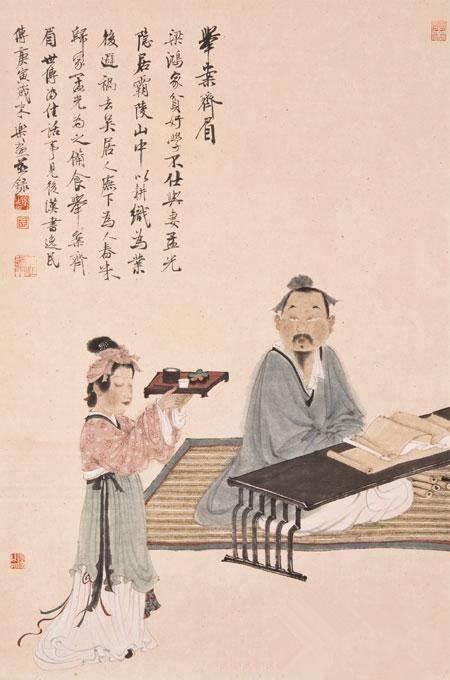 舉案齊眉
梁鴻家貧好學不仕與妻孟光
隱居霸陵山中以耕織為業
後避禍去吳居人廡下為人舂米
歸家孟光為之備食舉案齊
眉世傳為佳話事見後漢書逸民
傳庚寅歲末樂並錄